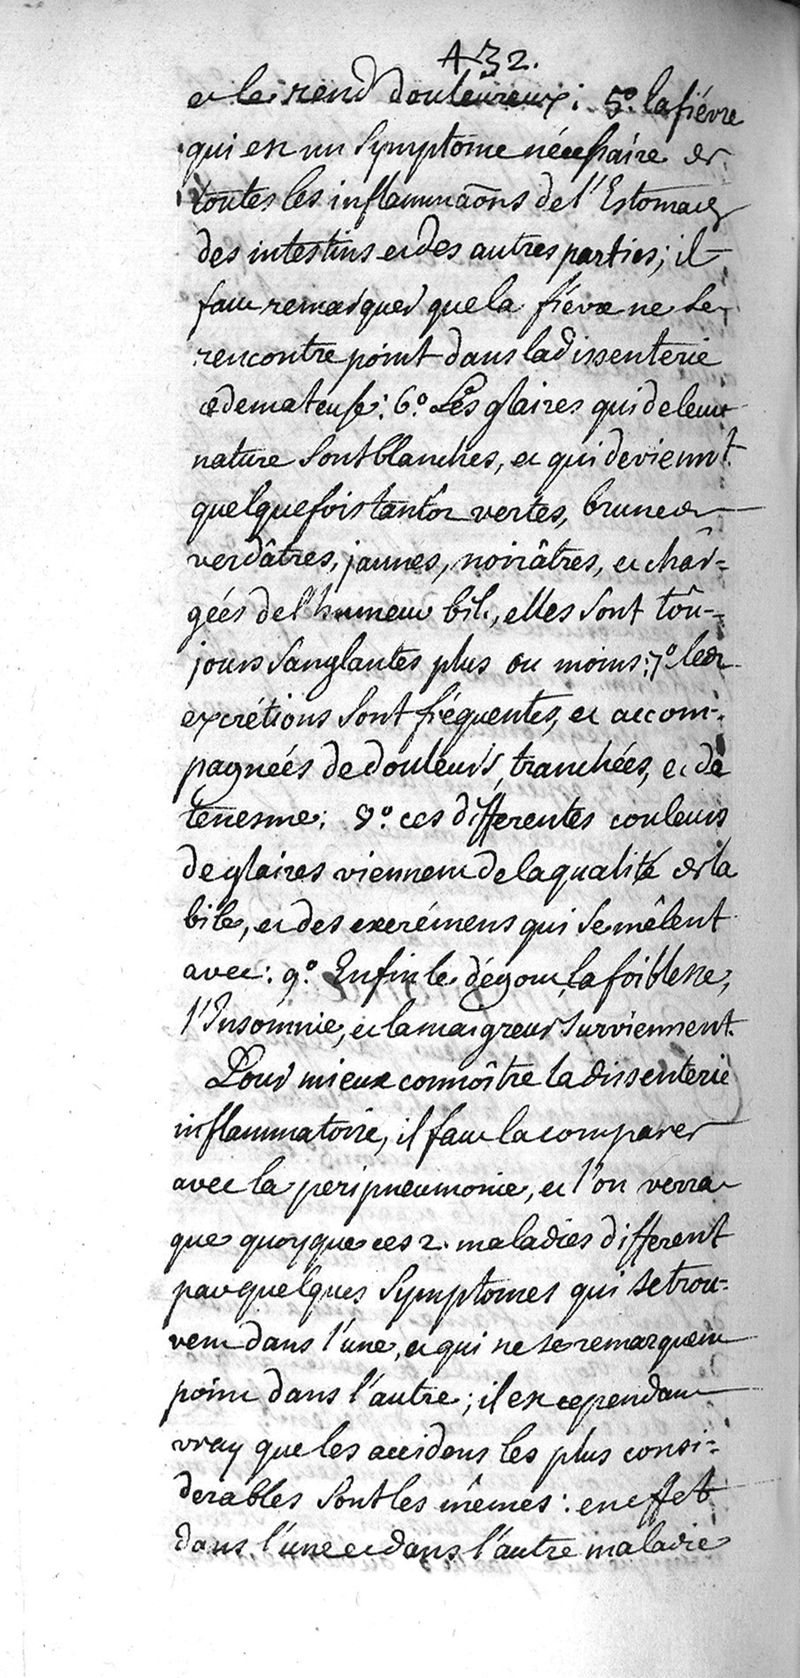 A32.
et le rend douleureux; 5.° la fiévre
qui est un symptome nécessaire de
toutes les inflammaõns de l'Estomac
des intestins et des autres parties; il
faut remarquer que la fiévre ne se
rencontre point dans la dissenterie
œdemateuse: 6.° Les glaires qui de leur
nature sont blanches, et qui devienn.t
quelquefois tantôt vertes, brunes
verdâtres, jaunes, noirâtres, et châr-
gées de l'humeur bil., elles sont toû-
jours sanglantes plus ou moins: 7.° les
excrétions sont fréquentes, et accom-
pagneés de douleurs, tranchées, et de
tenesme; 8.° ces différentes couleurs
de glaires viennent de la qualité de la
bile, et des excrémens qui se mêlent
avec: 9.° Enfin le dégout, la foiblesse,
l'Insomnie, et la maigreur surviennent.
Pour mieux connoître la dissenterie
inflammatoire, il faut la comparer
avec la peripneumonie, et l'on verra
que quoyque ces 2. maladies different
par quelques symptomes qui se trou-
vent dans l'une, et qui ne se remarquent
point dans l'autre; il est cependant
vray que les accidens les plus consi-
derables sont les mêmes: en effet
dans l'une et dans l'autre maladie